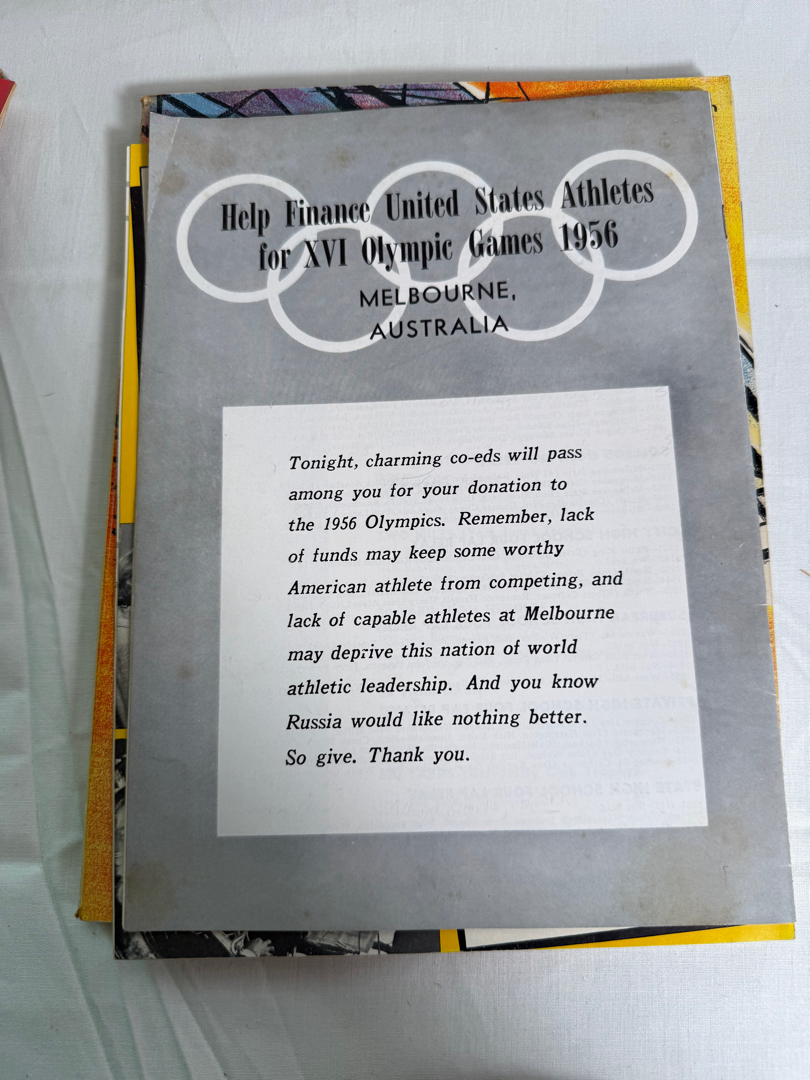 Help Finance United States Athletes
for XVI Olympic Games 1956
MELBOURNE,
AUSTRALIA
Tonight, charming co-eds will pass
among you for your donation to
the 1956 Olympics. Remember, lack
of funds may keep some worthy
American athlete from competing, and
lack of capable athletes at Melbourne
may deprive this nation of world
athletic leadership. And you know
Russia would like nothing better.
So give. Thank you.